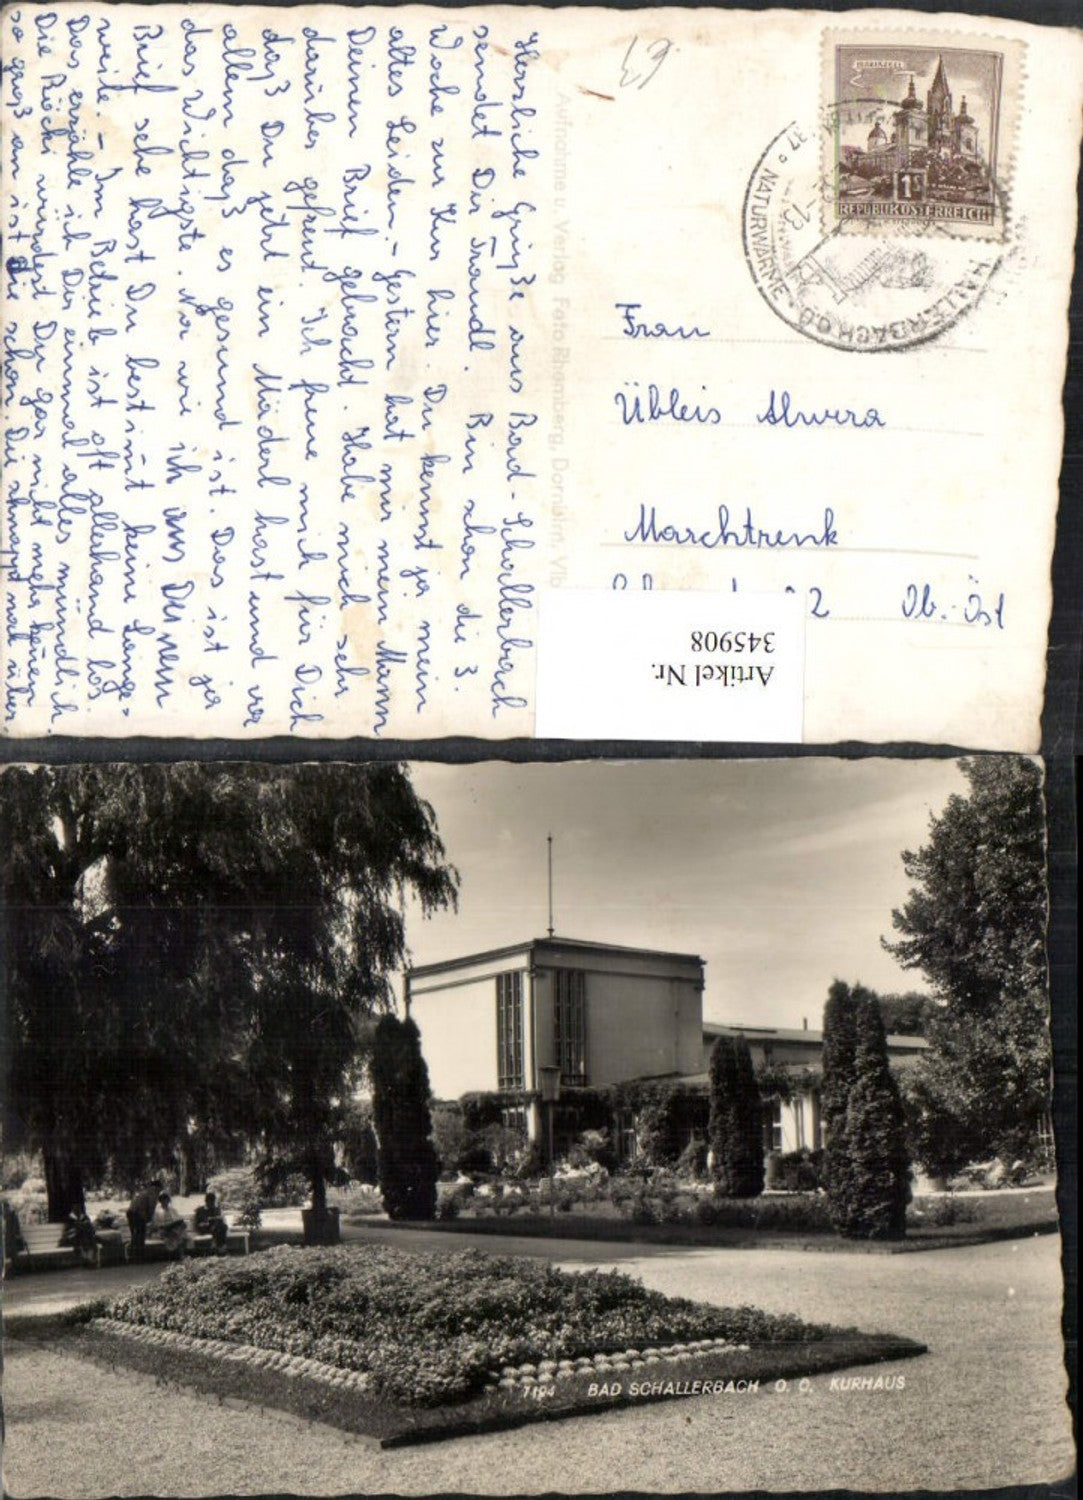 Herzliche Grüße aus Bad-Schallerbach
sendet Dir Traudl. Bin schon die 3.
Woche zur Kur hier. Du kennst ja mein
altes Leiden.- Gestern hat mir mein Mann
Deinen Brief gebracht. Habe mich sehr
darüber gefreut. Ich freue mich für Dich
daß Du jetzt ein Mäderl hast und vor
allem daß es gesund ist. Das ist ja
das Wichtigste. Na wie ich aus Deinem
Brief sehe hast Du bestimt keine Lange=
weile.- Im Betrieb ist oft allerhand los.
Das erzähle ich Dir einmal alles mündlich.
Die Röcki würdest Du gar nicht mehr kennen
so groß an ist die schon. Die schnappt mal über.
Aufnahme u. Verlag Foto Rhomberg, Dornbirn, Vlb
63
MARIAZELL
1 S
REPUBLIK ÖSTERREICH
NATURWARME
SCHALLERBACH O.Ö.
Frau
Übleis Alwera
Marchtrenk
22 Ob.-Öst
Artikel Nr.
345908
7194 BAD SCHALLERBACH O. Ö. KURHAUS